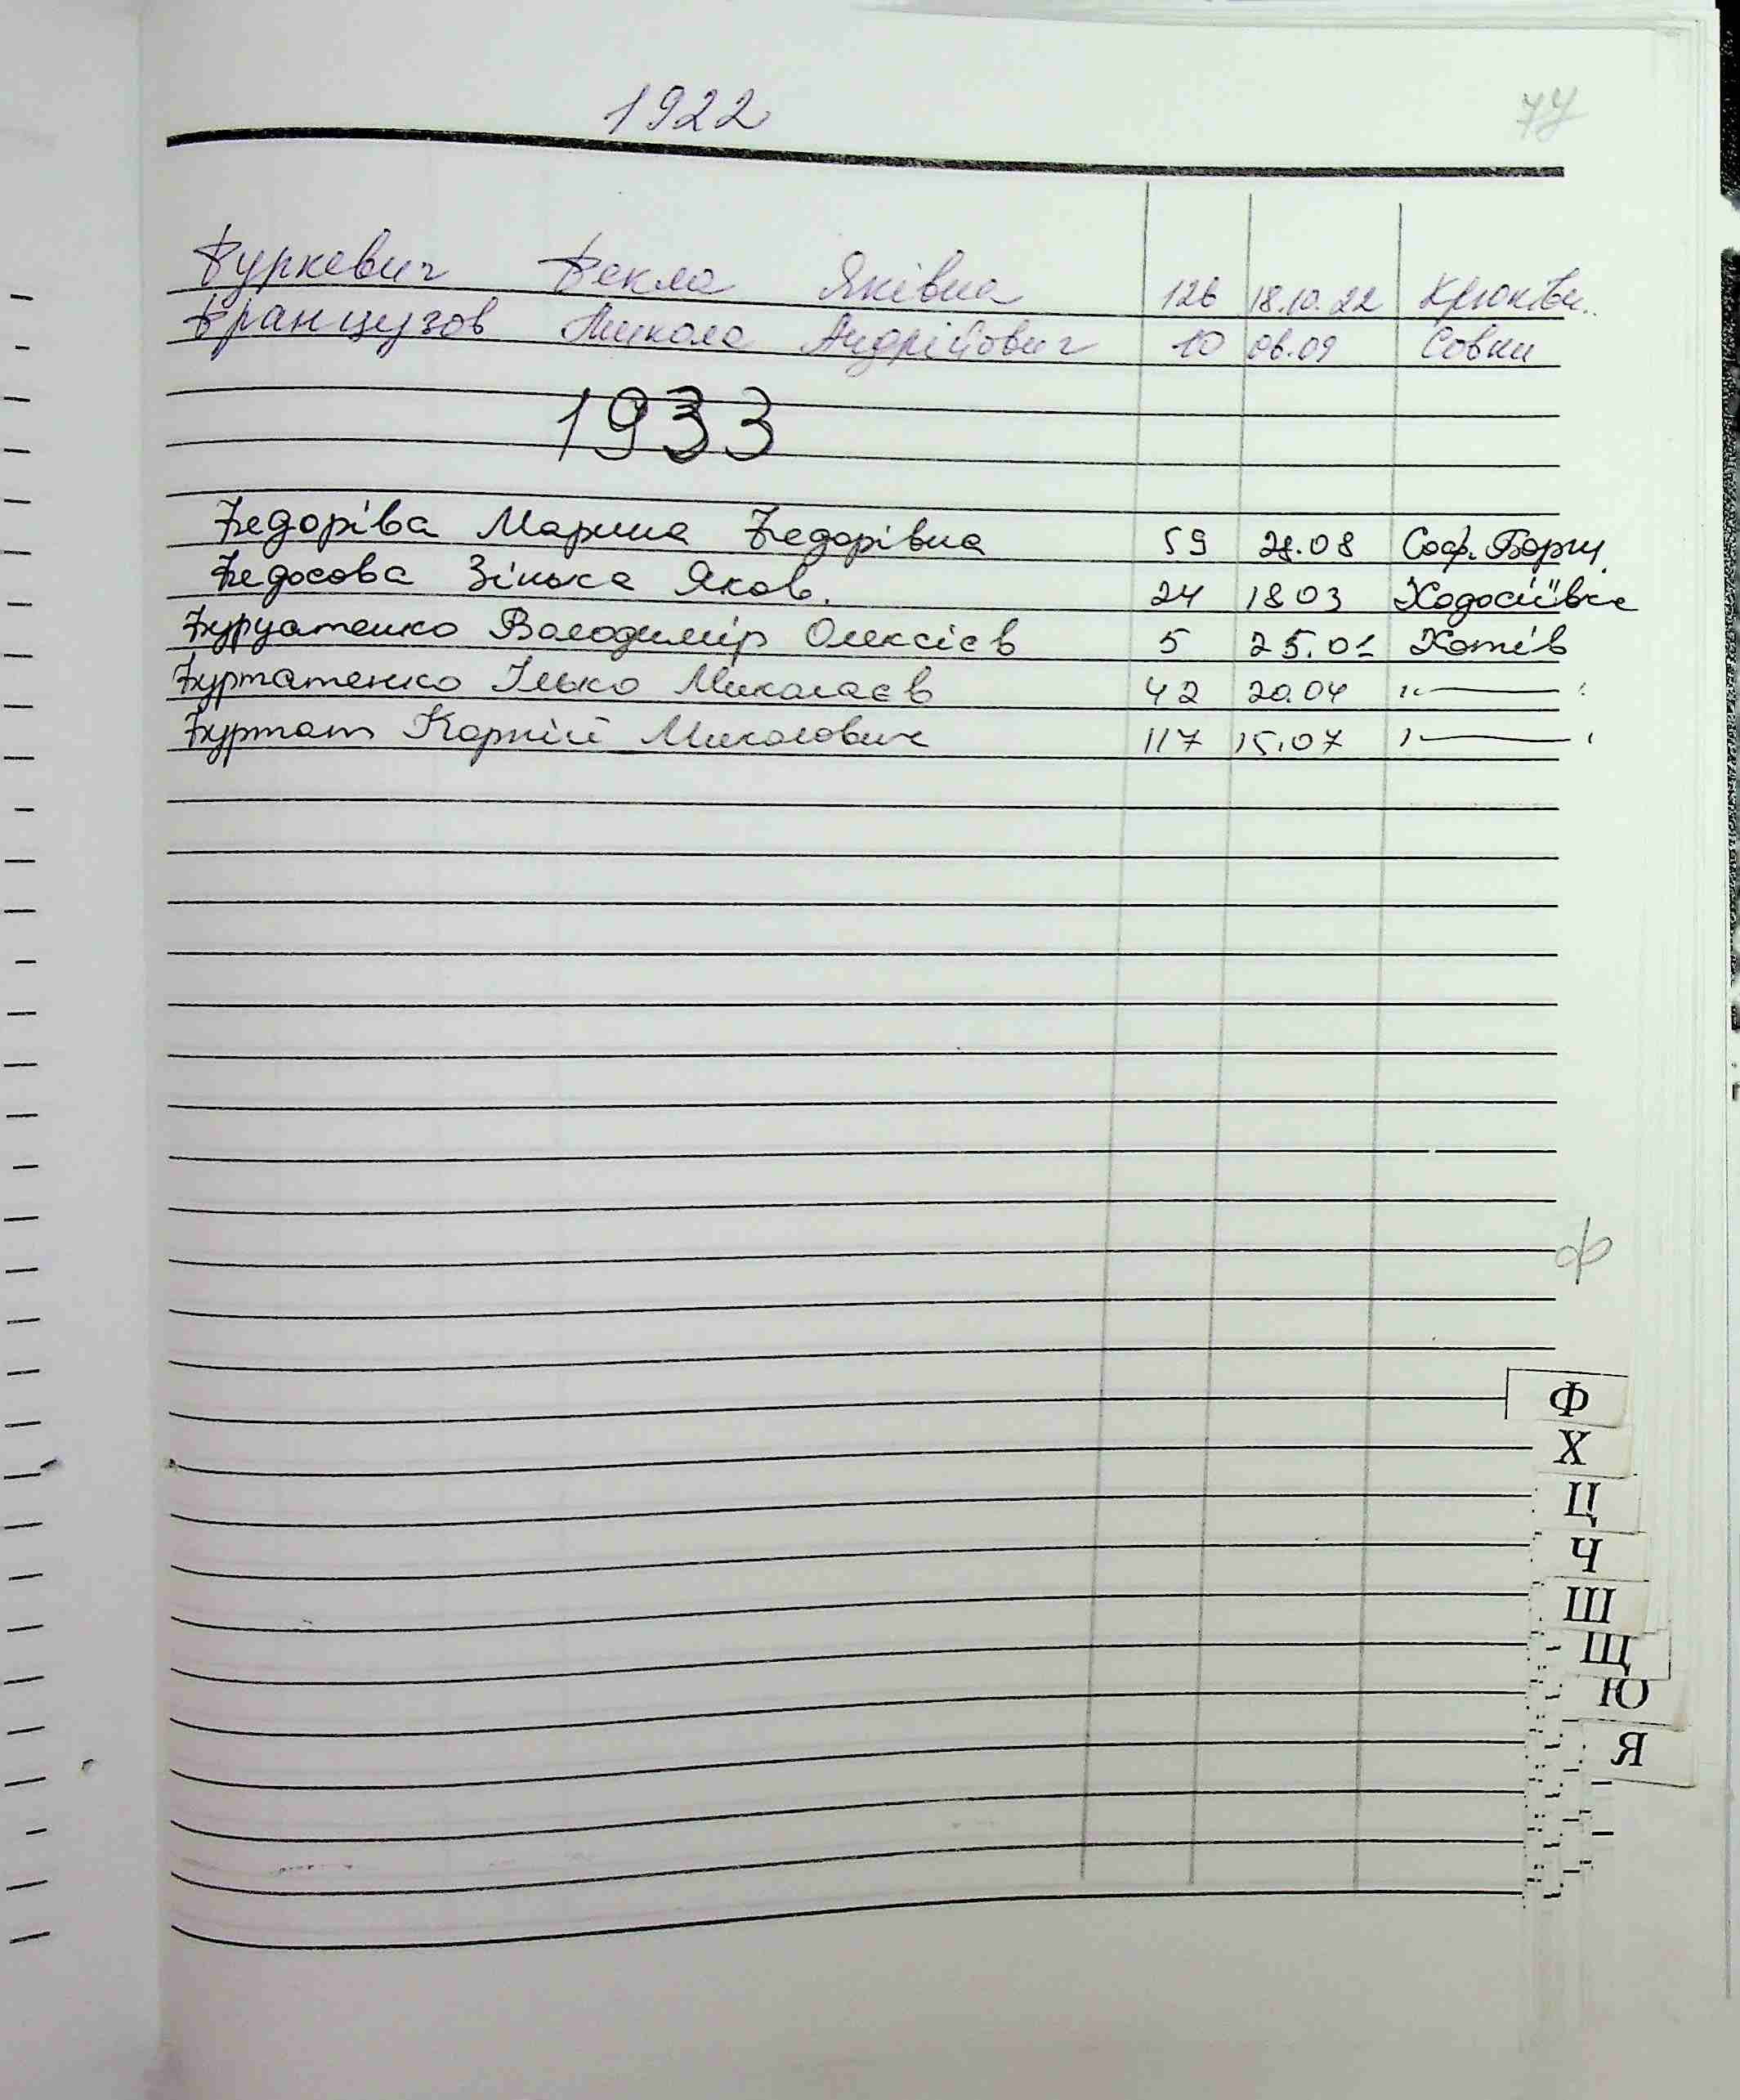 1922
Фуркевич Фекла Яківна 126 18.10.22 Крюківщ..
Французов Микола Андрійович 10 06.09 Совки
1933
Федоріва Марина Федорівна 59 28.08 Соф. Борщ.
Федосова Зінька Яков. 24 18 03 Ходосіївка
Володимір Олексієв 5 25.01 Хотів
Фуртатенко Ілько Миколаєв 42 20.04 "—"
Фуртат Корній Миколович 117 15.07 "—"
ф
Ф
Х
Ц
Ч
Ш
Щ
Ю
Я